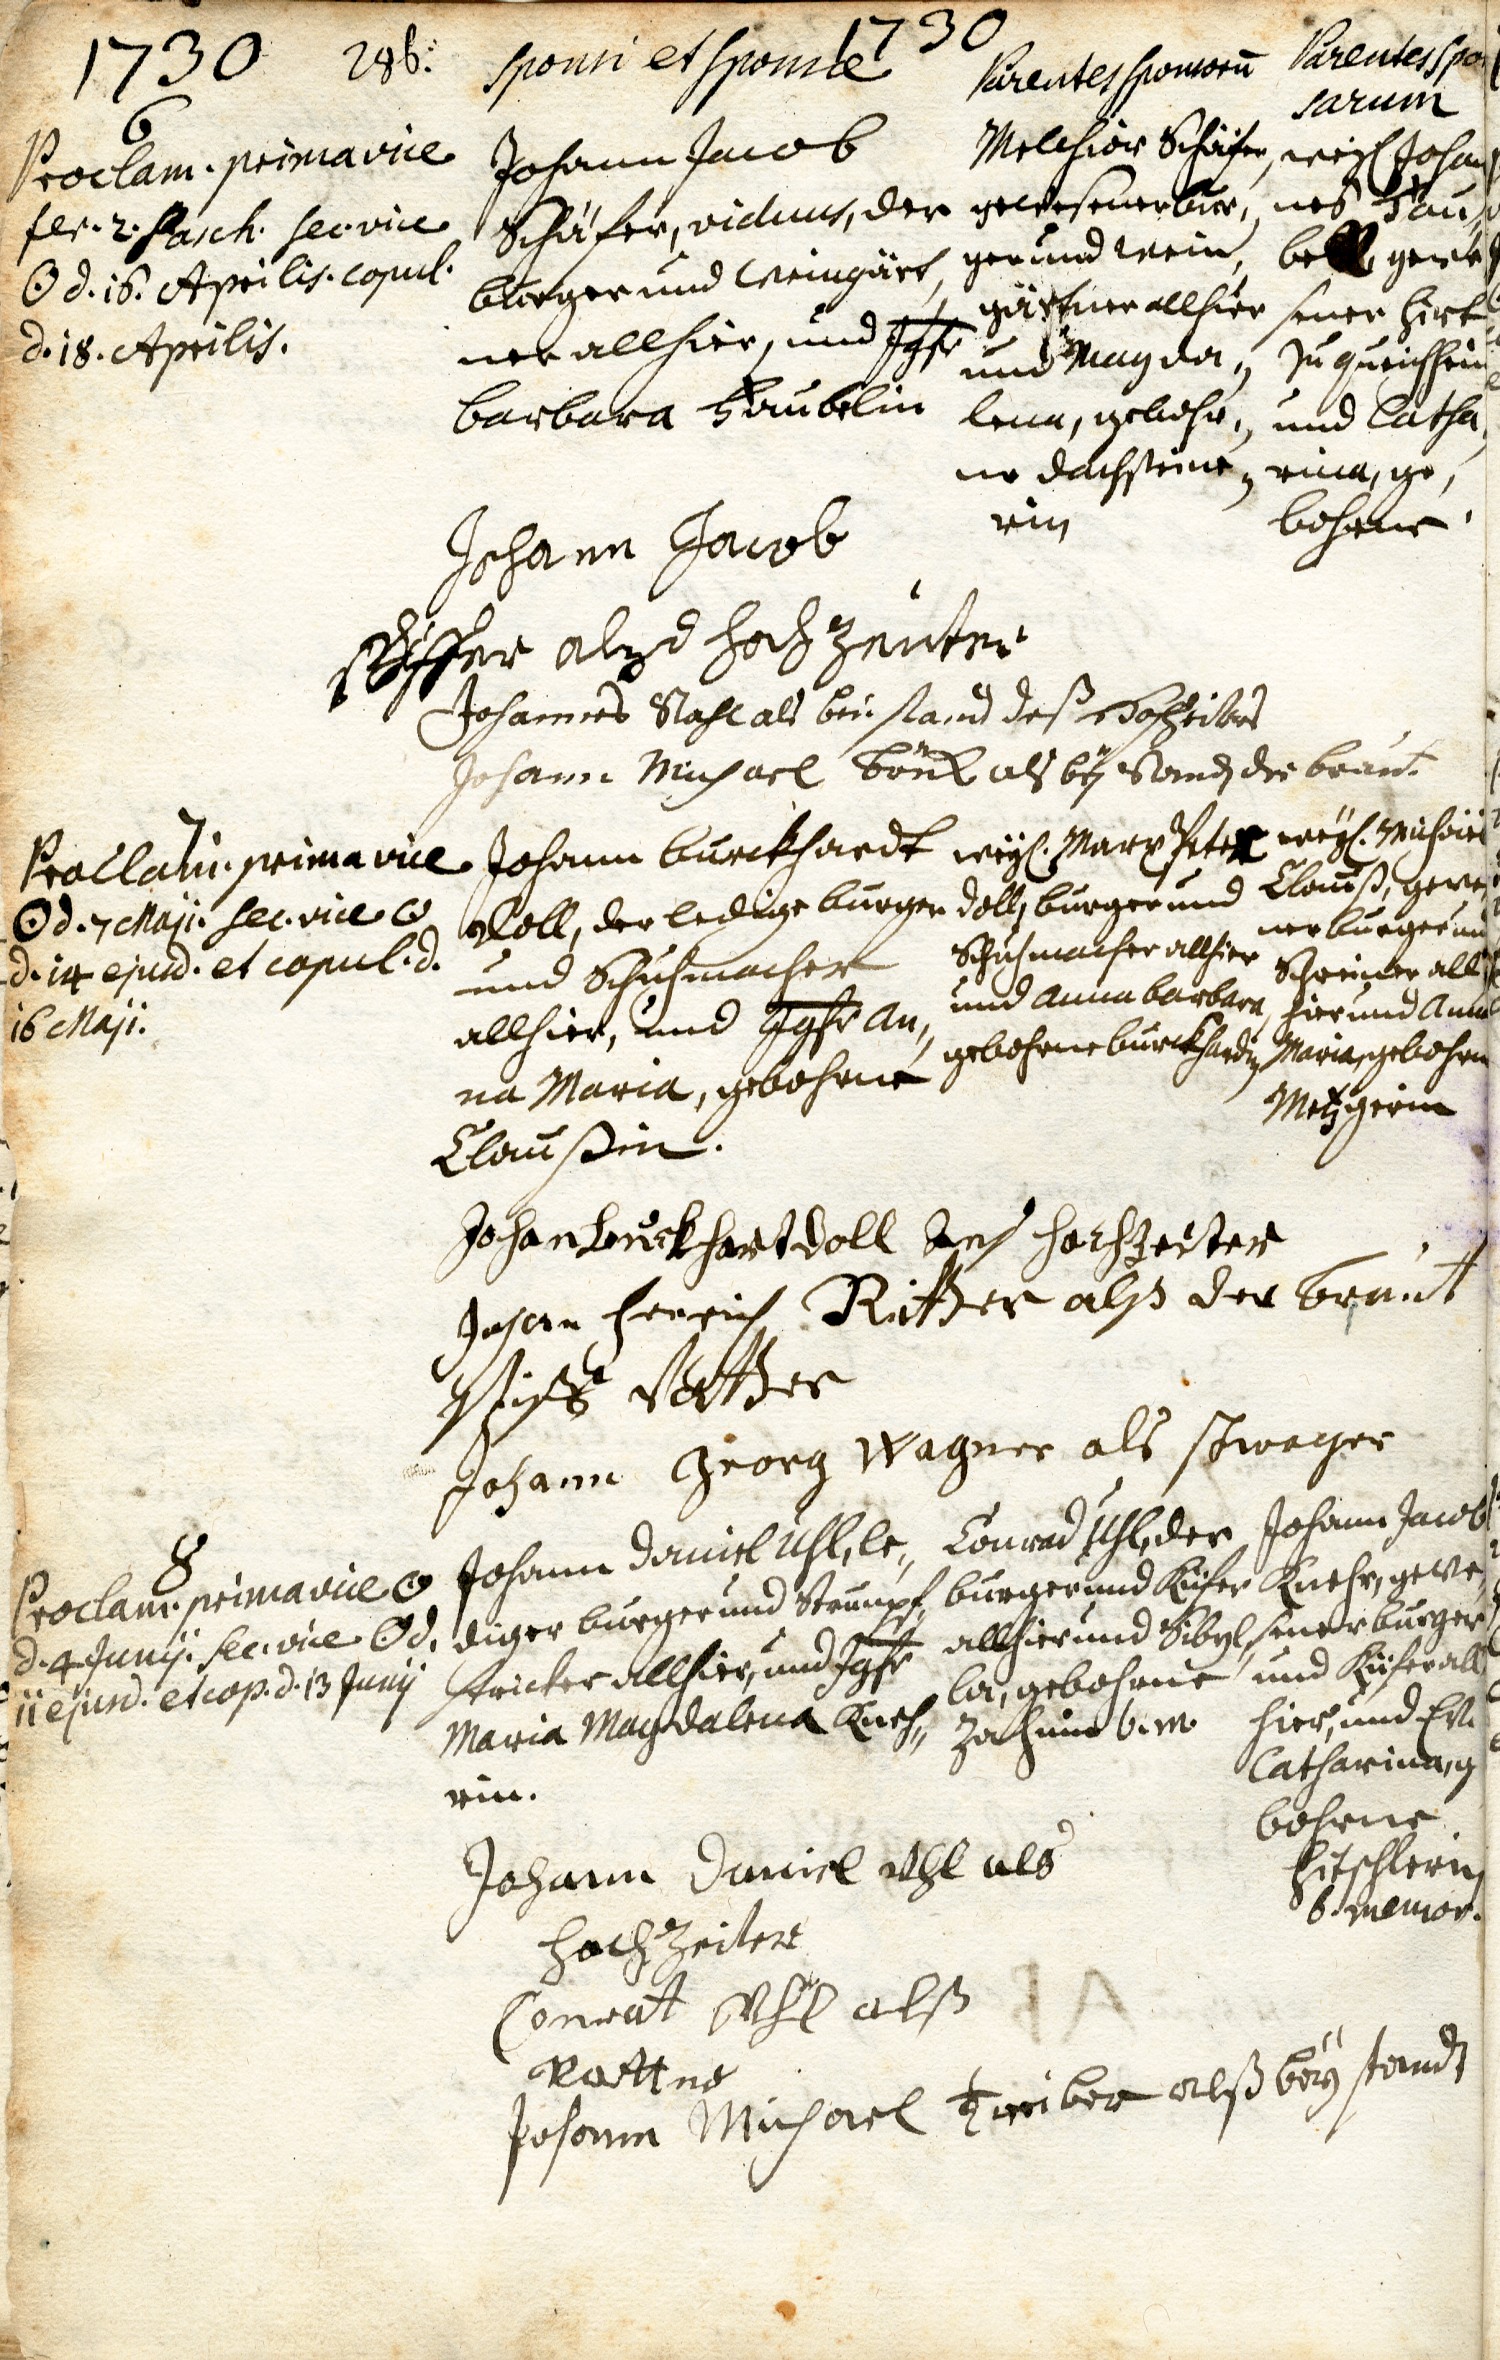 1730 286. Sponsi et Sponsae 1730 Parentes Sponsorū Parentes Spon
sarum
6
Proclam. prima vice
fer. 2. Pasch. sec. vice
☉ d. 16. Aprilis. copul.
d. 18. Aprilis.
Johann Jacob
Schäfer, viduus, der
burger und Weingärt,
ner allhier, und Jgfr
Barbara Täubelin
Melchior Schäfer,
gewesener bur,
ger und Wein,
gärtner allhier
und Magda,,
lena, gebohr,,
ne Dachstein,,
rin
weyl. Johan
nes Täu,
bell, gewe
sener Hirt
zu Queichheim
und Catha,
rina, ge,
bohrne
Johann Jacob
schiffer alß hochzeuter
Johannes Stahl als beistand deß Hochzeiters
Johann Michael als beystand der braut
7
Proclam. prima vice
☉ d. 7 Maji. sec. vice ☉
d. 14 ejusd. et copul. d.
16 Maji.
Johann Burckhardt
Doll, der ledige burger
und Schuhmacher
allhier, und Jgfr An,,
na Maria, gebohrne
Claußin.
weyl. Marx Peter
Doll, burger und
Schuhmacher allhier
und Anna Barbara,
gebohrne Burckhardin
weyl. Michael
Clauß, gewe,
ner burger und
Schreiner all
hier und Anna
Maria, gebohrne
Metzgerin
Johan Burckhart Doll als hochzeiter
Johan Henrich Ritter alß der braut
stiff Vatter
Johann Georg Wagner als schwager
8
Proclam. prima vice ☉
d. 4 Junij. sec. vice ☉ d.
11 ejusd. et cop. d. 13 Junij
Johann Daniel Uhl, le,,
diger burger und Strumpf,
stricker allhier, und Jgfr
Maria Magdalena Kneh,,
rin.
Conrad Uhl, der
burger und Küfer
allhier und Sibyl,
la, gebohrne
b. m.
Johann Jacob
Knehr, gewe,
sener burger
und Küfer all
hier, und Ev.
Catharina, g
bohrne
Hitschlerin
b. memor.
Johann Daniel Uhl als
hochzeiter
Conrat Uhl alß
Vatter
Johann Michael Treiber alß bey standt